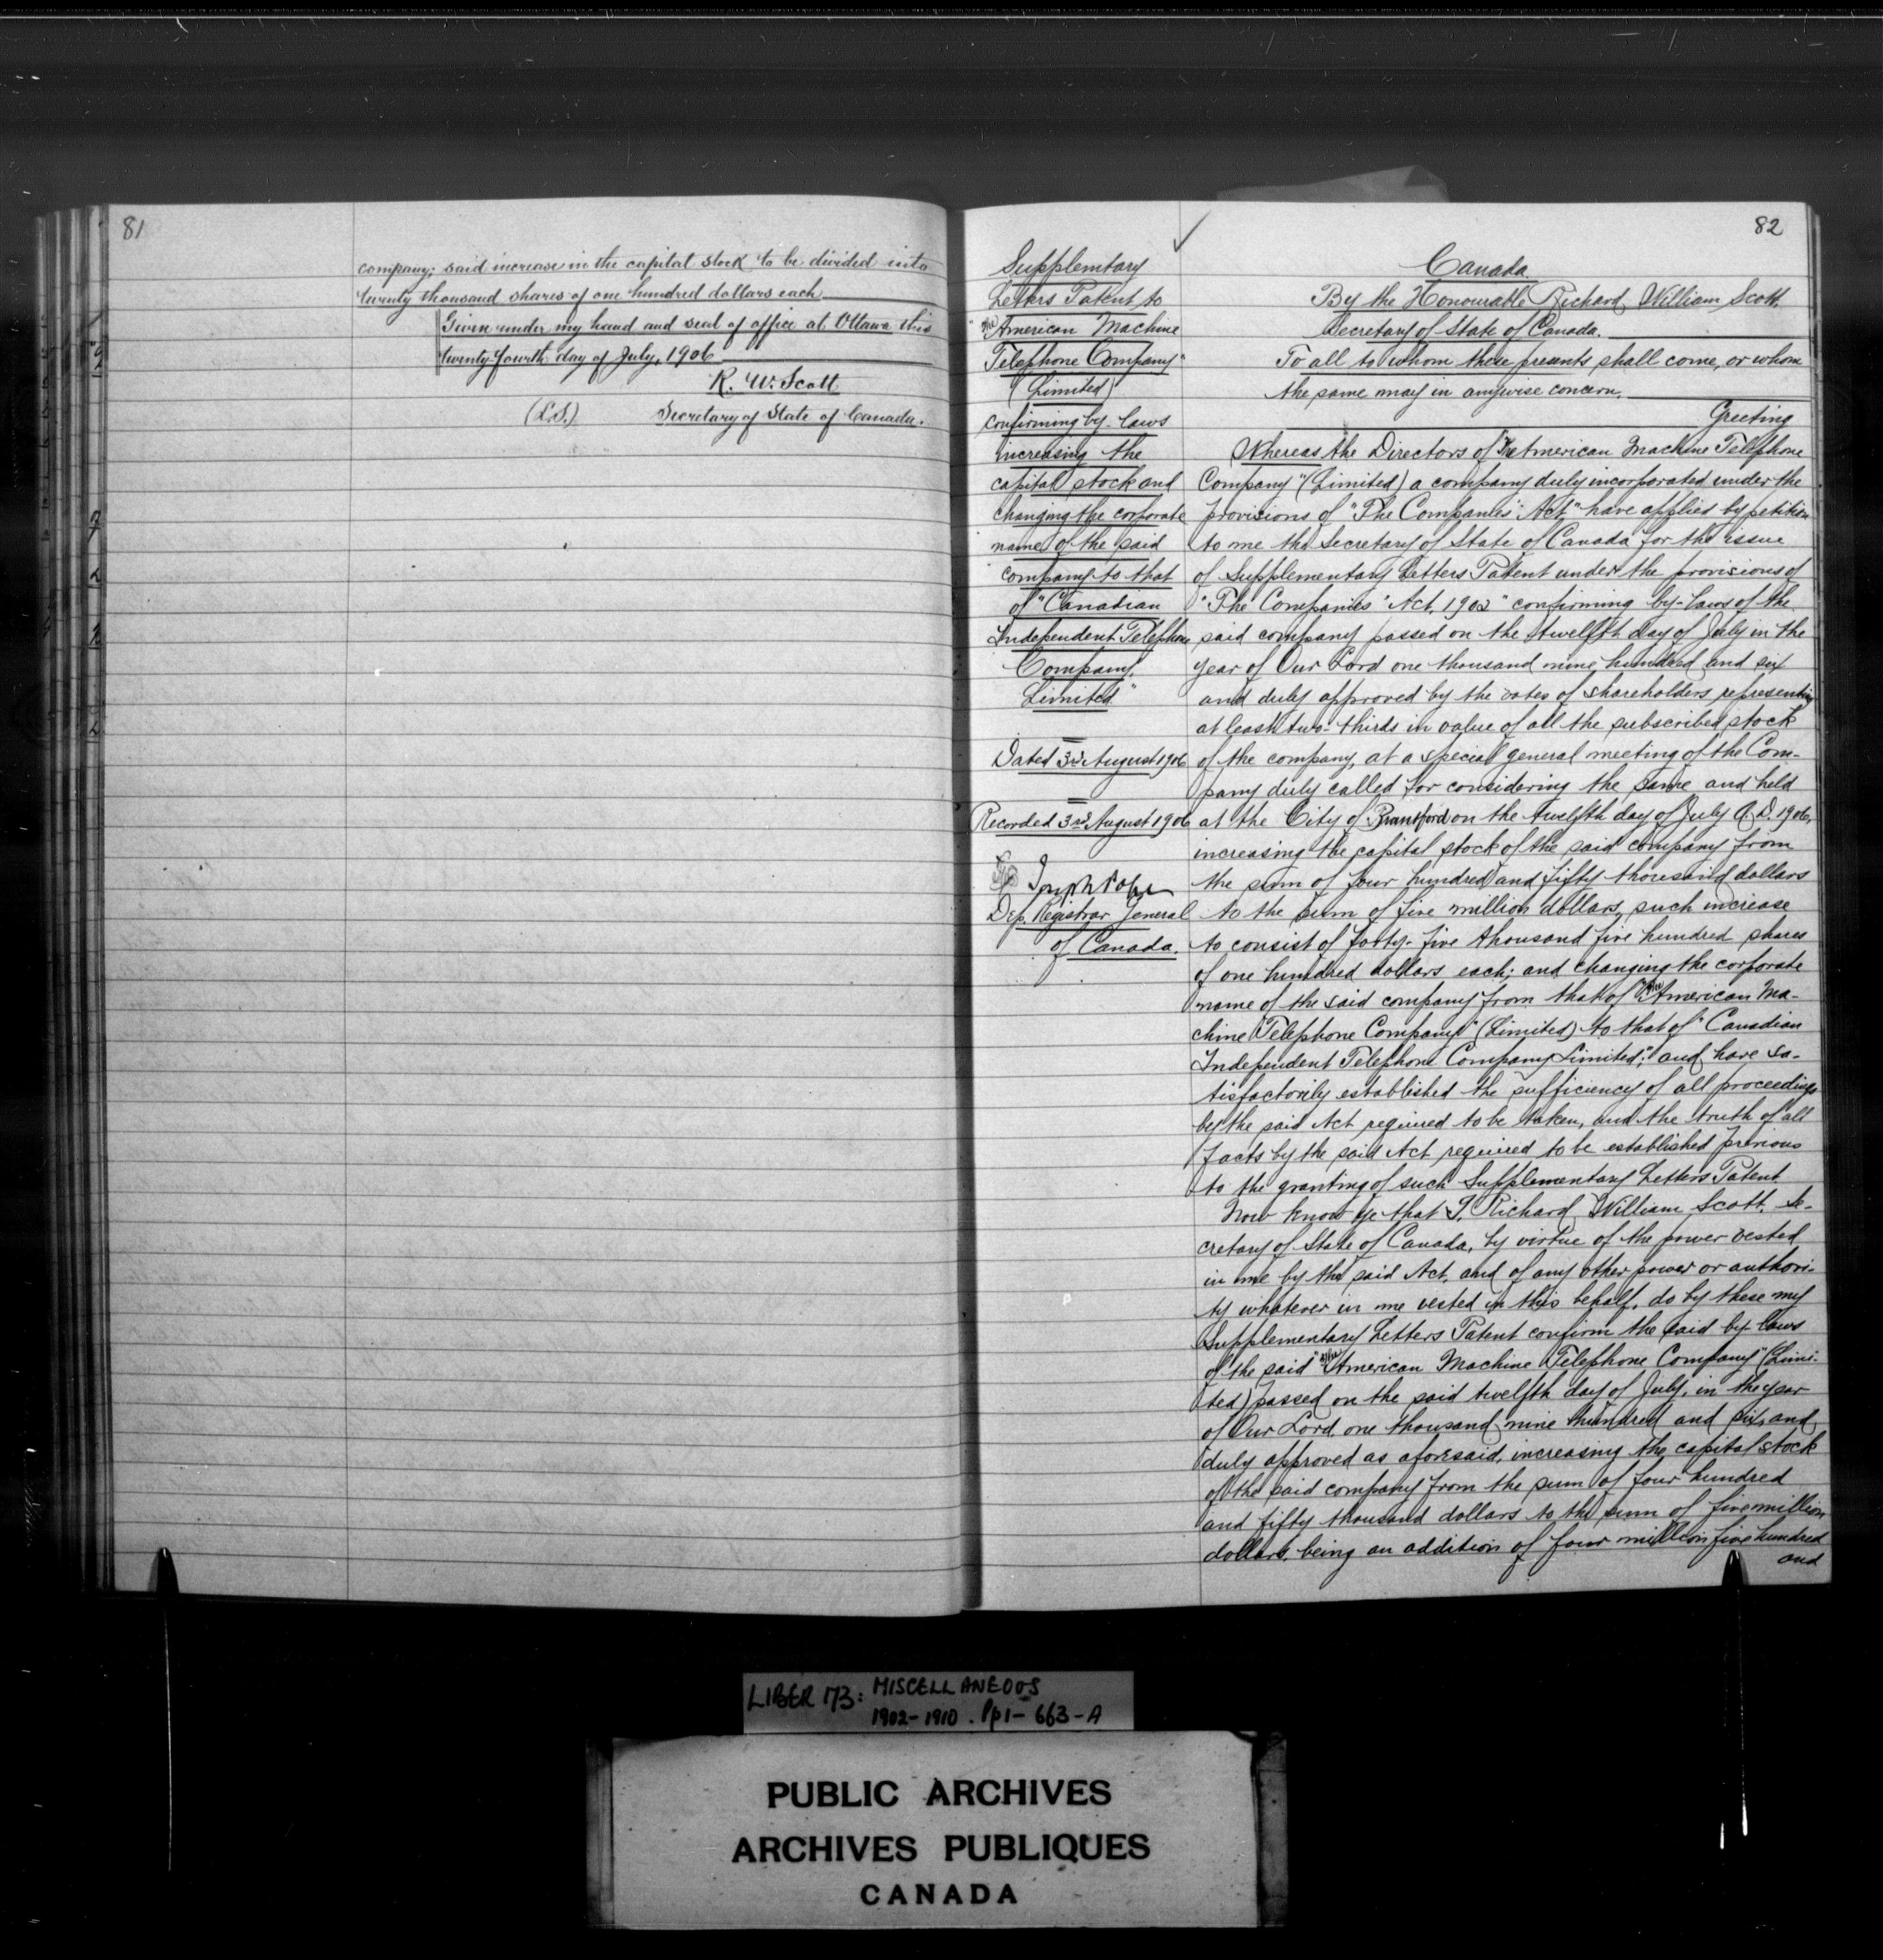 81
company; said increase in the capital stock to be divided into
twenty thousand shares of one hundred dollars each
Given under my hand and seal of office at Ottawa this
twenty-fourth day of July, 1906
R. W. Scott
(L.S.) Secretary of State of Canada.
82
Supplemtary
Letters Patent to
"The American Machine
Telephone Company"
(Limited)
confirming by-laws
increasing the
capital stock and
changing the corporate
name of the said
company to that
of "Canadian
Independent Telephone
Company,
Limited"
Dated 3rd August 1906
Recorded 3rd August 1906
Joseph Pope
Dep. Registrar General
of Canada.
Canada
By the Honourable Richard William Scott,
Secretary of State of Canada.
To all to whom these presents shall come, or whom
the same may in anywise concern,
Greeting
Whereas the Directors of "The American Machine Telephone
Company" (Limited) a company duly incorporated under the
provisions of "The Companies' Act" have applied by petition
to me the Secretary of State of Canada for the issue
of Supplementary Letters Patent under the provisions of
"The Companies' Act, 1902" confirming by-laws of the
said company passed on the twelfth day of July in the
year of Our Lord one thousand nine hundred and six
and duly approved by the votes of shareholders, representing
at least two-thirds in value of all the subscribed stock
of the company, at a special general meeting of the Com-
pany duly called for considering the same and held
at the City of Brantford on the twelfth day of July A.D. 1906,
increasing the capital stock of the said company from
the sum of four hundred and fifty thousand dollars
to the sum of five million dollars, such increase
to consist of forty-five thousand five hundred shares
of one hundred dollars each; and changing the corporate
name of the said company from that of "The American Ma-
chine Telephone Company" (Limited) to that of "Canadian
Independent Telephone Company Limited"; and have sa-
tisfactorily established the sufficiency of all proceedings
by the said Act required to be taken, and the truth of all
facts by the said Act required to be established previous
to the granting of such Supplementary Letters Patent
Now know ye that I, Richard William Scott, Se-
cretary of State of Canada, by virtue of the power vested
in me by the said Act, and of any other power or authori-
ty whatever in me vested in this behalf, do by these my
Supplementary Letters Patent confirm the said by-laws
of the said "The American Machine Telephone Company" (Limi-
ted) passed on the said twelfth day of July, in the year
of Our Lord one thousand nine hundred and six, and
duly approved as aforesaid, increasing the capital stock
of the said company from the sum of four hundred
and fifty thousand dollars to the sum of five million
dollars, being an addition of four million five hundred
and
LIBER 173: MISCELLANEOUS
1902-1910. Pp1-663-A
PUBLIC ARCHIVES
ARCHIVES PUBLIQUES
CANADA